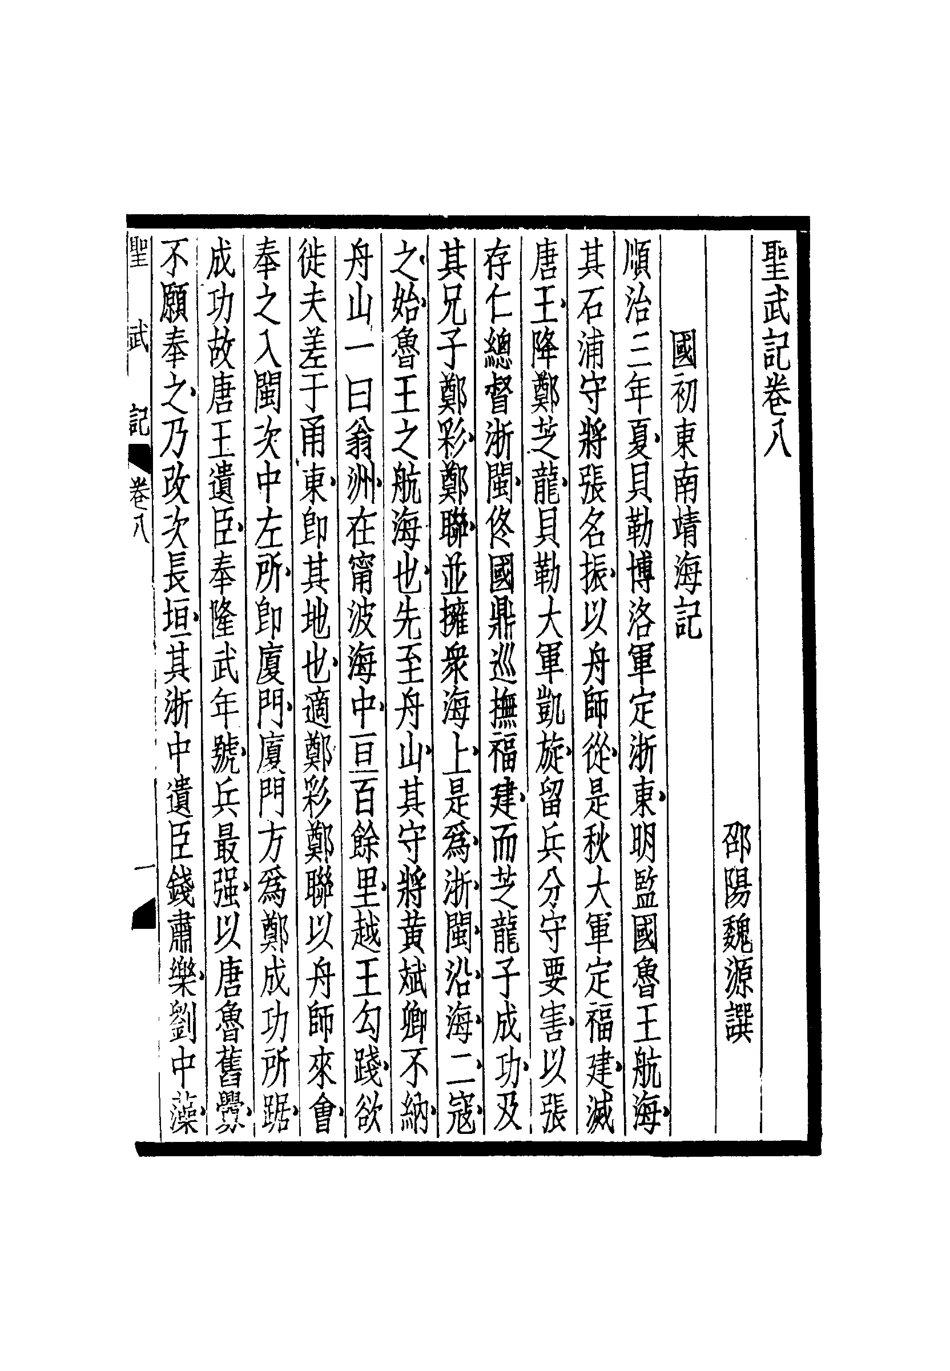 聖武記卷八
邵陽魏源譔
國初東南靖海記
順治三年夏貝勒博洛軍定浙東明監國魯王航海
其石浦守將張名振以舟師從是秋大軍定福建滅
唐王降鄭芝龍貝勒大軍凱旋留兵分守要害以張
存仁總督浙閩佟國鼎巡撫福建而芝龍子成功及
其兄子鄭彩鄭聯並擁衆海上是爲浙閩沿海二寇
之始魯王之航海也先至舟山其守將黃斌卿不納
舟山一曰翁洲在甯波海中亘百餘里越王勾踐欲
徙夫差于甬東卽其地也適鄭彩鄭聯以舟師來會
奉之入閩次中左所卽廈門廈門方爲鄭成功所踞
成功故唐王遺臣奉隆武年號兵最强以唐魯舊釁
不願奉之乃改次長垣其浙中遺臣錢肅樂劉中藻
聖武記
卷八
一